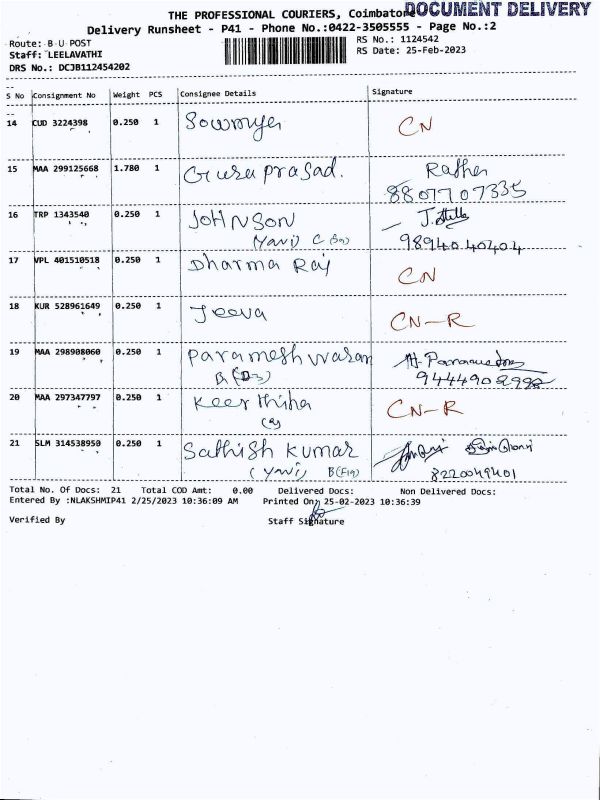 THE PROFESSIONAL COURIERS, Coimbatore
DOCUMENT DELIVERY
Delivery Runsheet - P41 - Phone No.:0422-3505555 - Page No.:2
Route: B U POST
RS No.: 1124542
Staff: LEELAVATHI
RS Date: 25-Feb-2023
DRS No.: DCJB112454202
S No Consignment No Weight PCS Consignee Details Signature
14 CUD 3224398 0.250 1 Sowmya CN
15 MAA 299125668 1.780 1 Guru prasad. Rather
8807707335
16 TRP 1343540 0.250 1 JOHNSON J. Stella
(Yavi) C 9894040404
17 VPL 401510518 0.250 1 Dharma Raj CN
18 KUR 528961649 0.250 1 Jeeva CN-R
19 MAA 298908060 0.250 1 Parameshwaran
9444902992
20 MAA 297347797 0.250 1 Keerthiha CN-R
21 SLM 314538950 0.250 1 Sathish Kumar
(Yavi) 8220049401
Total No. Of Docs: 21 Total COD Amt: 0.00 Delivered Docs: Non Delivered Docs:
Entered By :NLAKSHMIP41 2/25/2023 10:36:09 AM Printed On: 25-02-2023 10:36:39
Verified By Staff Signature